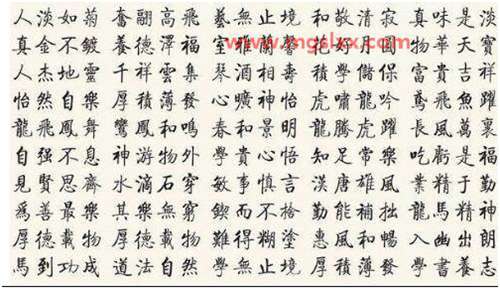 人淡如菊 奮翮高飛 藝無止境 和敬清寂 真味是淡
真金不鍍 養德澤福 室 花好月圓 物華天寶
www.mgslxx.com
人杰地靈 千祥雲集 琴酒相壽 學儲 富貴吉祥
怡然自樂 厚積薄發 心曠神怡 虎嘯龍吟 鳶飛魚躍
龍飛鳳舞 鸞鳳和鳴 春和景明 龍騰虎躍 長風萬裏
自强不息 神游物外 學貴心悟 知足常樂 吃虧是福
見賢思齊 水滴石穿 敏事慎言 漢唐雄風 業精于勤
爲善最樂 其樂無窮 鍥而不捨 勤能補拙 龍馬精神
厚德載物 厚德載物 難得糊塗 惠風和暢 入幽出朗
馬到功成 道法自然 學無止境 厚積薄發 學書養志